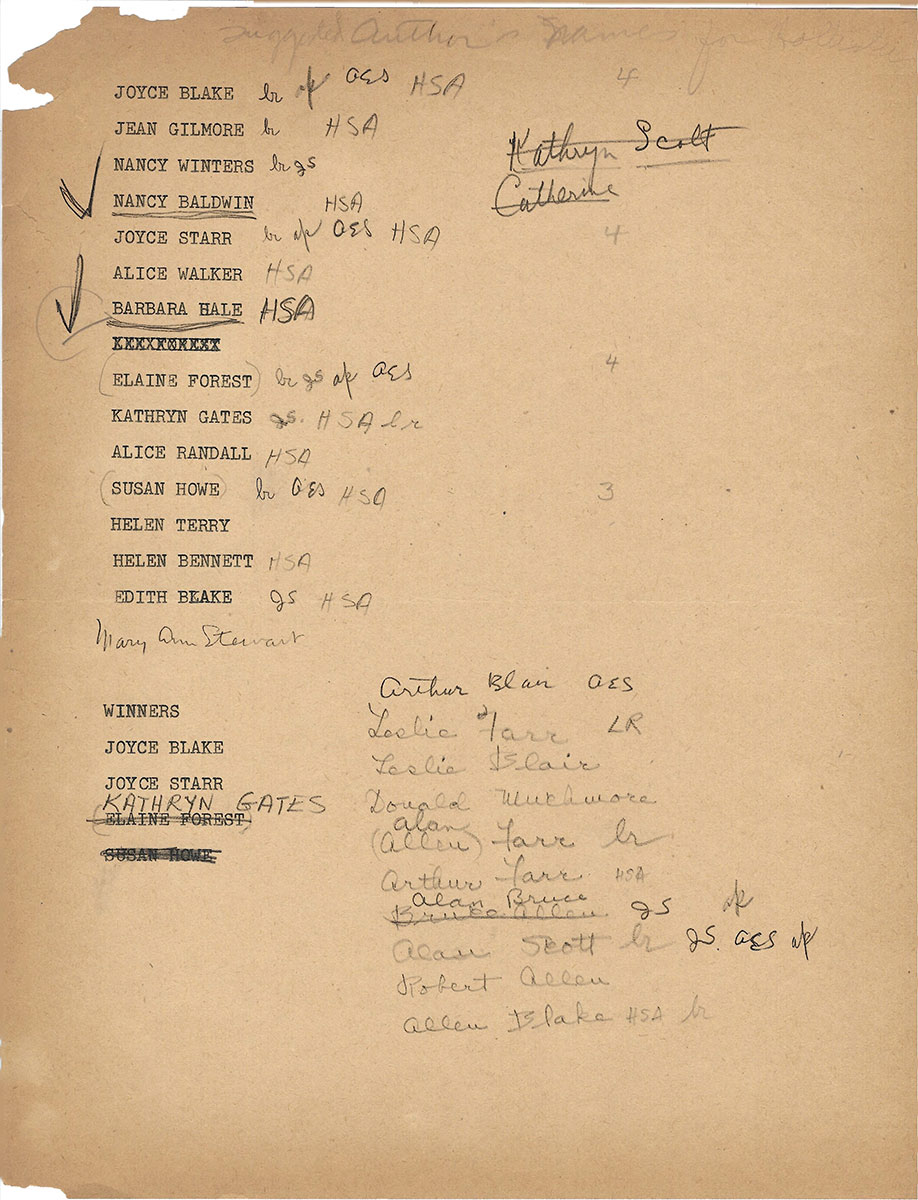 Suggested Author's Names for
JOYCE BLAKE br ap AES HSA 4
JEAN GILMORE br HSA
Kathryn Scott
NANCY WINTERS br gs
Catherine
NANCY BALDWIN HSA
JOYCE STARR br ap AES HSA 4
ALICE WALKER HSA
BARBARA HALE HSA
(ELAINE FOREST) br gs ap AES 4
KATHRYN GATES gs. HSA br
ALICE RANDALL HSA
(SUSAN HOWE) br AES HSA 3
HELEN TERRY
HELEN BENNETT HSA
EDITH BLAKE gs HSA
Mary Ann Stewart
Arthur Blair AES
WINNERS
Leslie Farr LR
JOYCE BLAKE
Leslie Blair
JOYCE STARR
KATHRYN GATES
Donald Muchmore
(ELAINE FOREST)
Alan
(Allen) Farr br
SUSAN HOWE
Arthur Farr HSA
Alan Bruce
Bruce Allen gs ap
Alan Scott br gs. AES ap
Robert Allen
Allen Blake HSA br